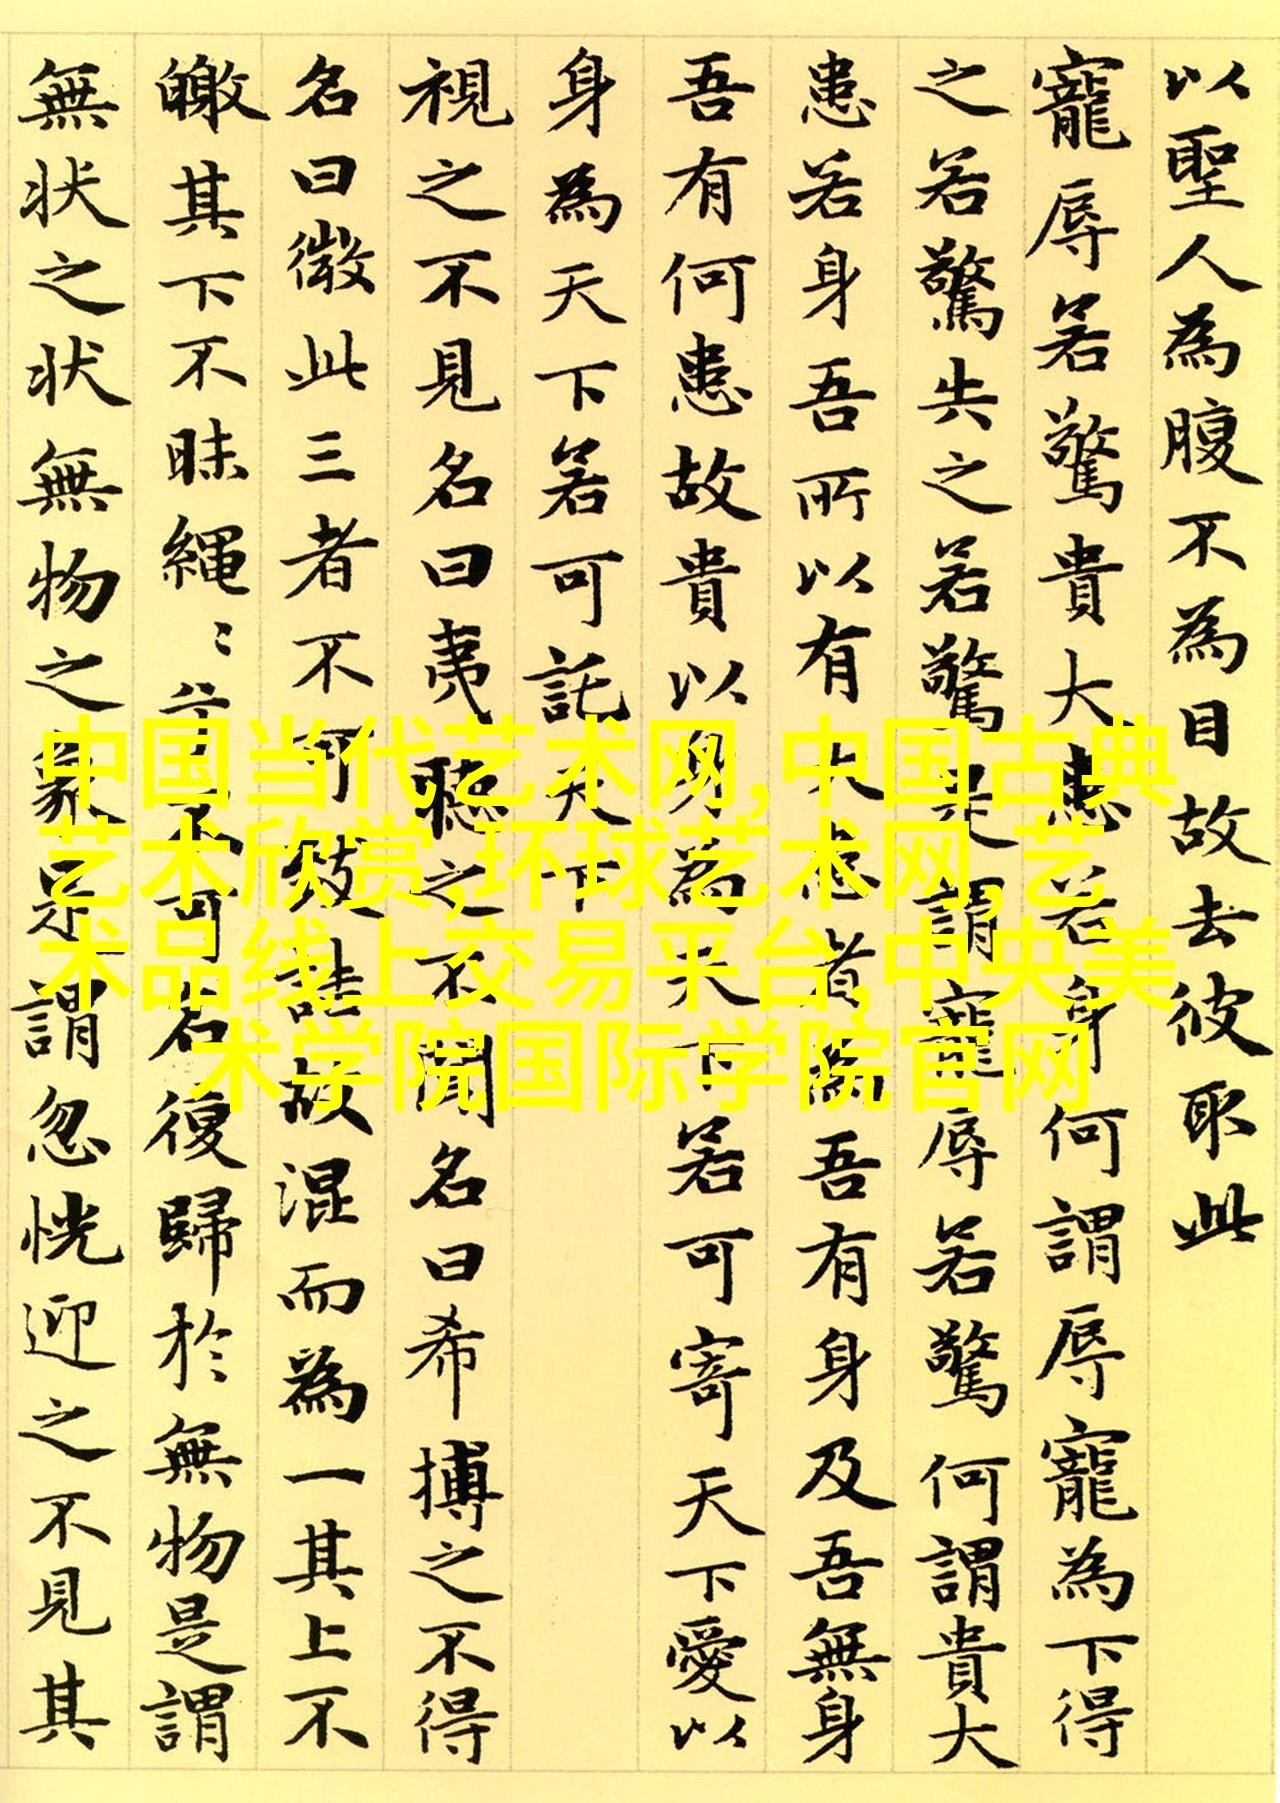 以聖人為腹不為目故去彼取此
寵辱若驚貴大患若身何謂辱寵為下得
之若驚失之若驚是謂寵辱若驚何謂貴大
患若身吾所以有大患者為吾有身及吾無身
吾有何患故貴以身為天下若可寄天下愛以
身為天下若可託天下
視之不見名曰夷聽之不聞名曰希搏之不得
名曰微此三者不可致詰故混而為一其上不
皦其下不昧繩〻兮不可名復歸於無物是謂
無状之状無物之象是謂忽恍迎之不見其
中国当代艺术网,中国古典
艺术欣赏,环球艺术网,艺
术品线上交易平台,中央美
术学院国际学院官网